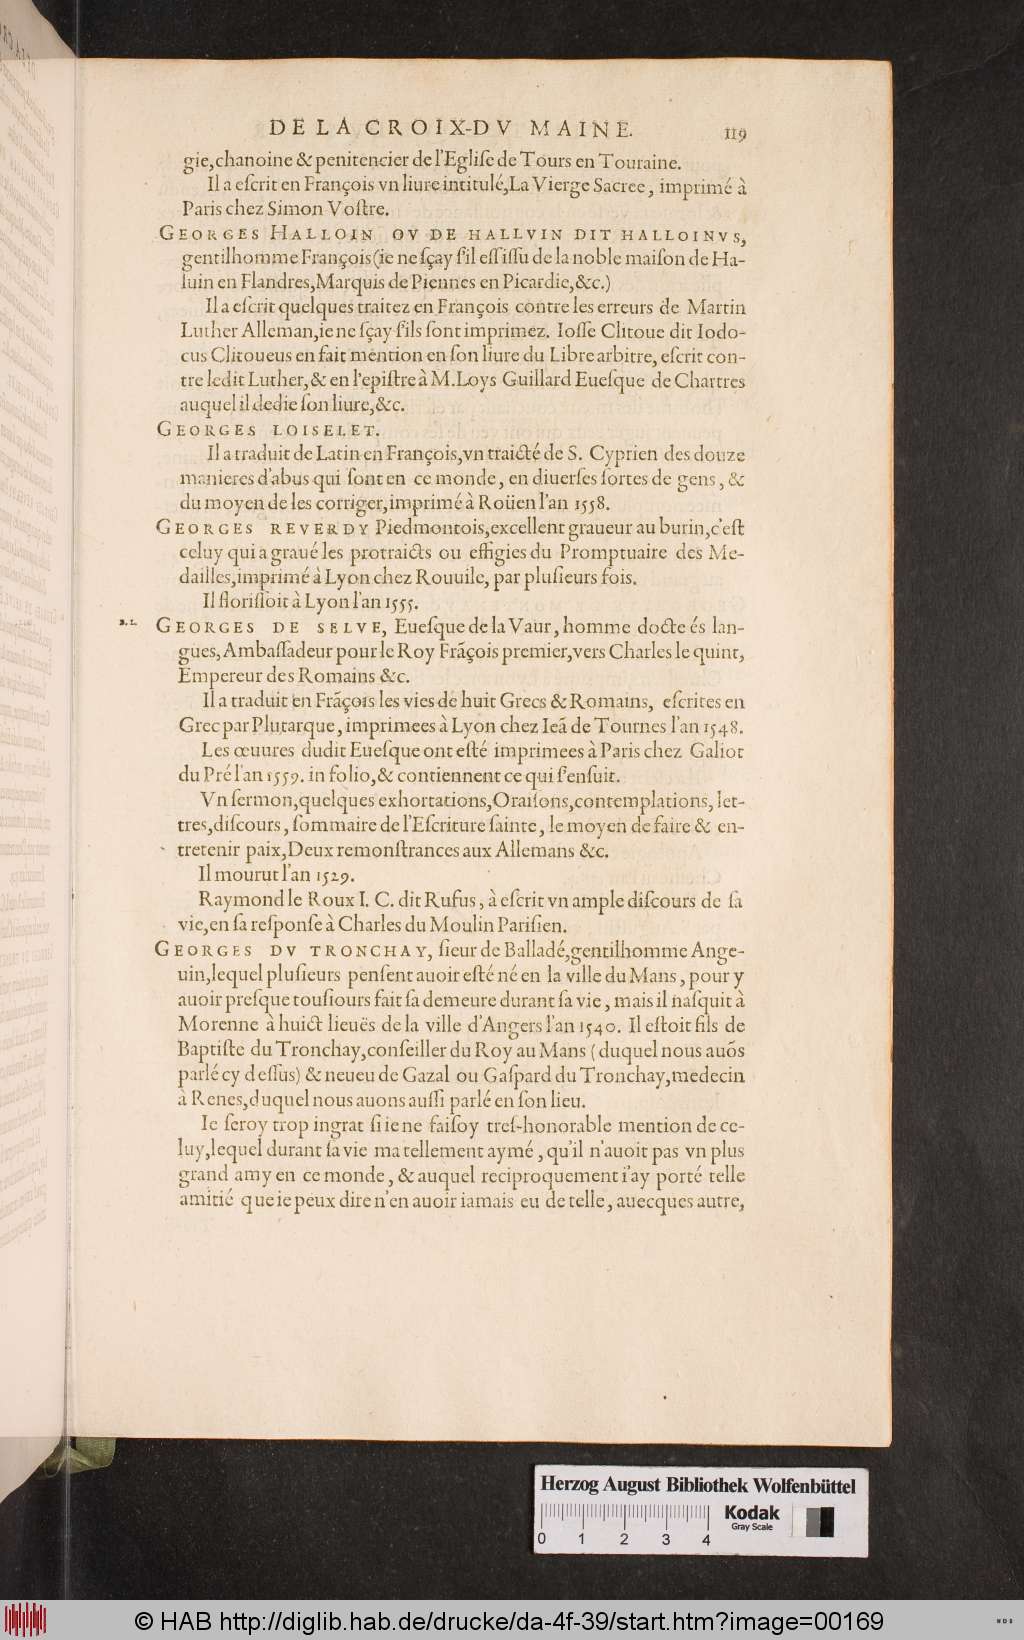 DE LA CROIX-DV MAINE. 119
gie,chanoine & penitencier de l'Egliſe de Tours en Touraine.
Il a eſcrit en François vn liure intitulé,La Vierge Sacree, imprimé à
Paris chez Simon Voſtre.
GEORGES HALLOIN OV DE HALLVIN DIT HALLOINVS,
gentilhomme François(ie ne ſçay ſ'il eſt iſſu de la noble maiſon de Ha-
luin en Flandres,Marquis de Piennes en Picardie,&c.)
Il a eſcrit quelques traitez en François contre les erreurs de Martin
Luther Alleman,ie ne ſçay ſ'ils ſont imprimez. Ioſſe Clitoue dit Iodo-
cus Clitoueus en fait mention en ſon liure du Libre arbitre, eſcrit con-
tre ledit Luther,& en l'epiſtre à M.Loys Guillard Eueſque de Chartres
auquel il dedie ſon liure,&c.
GEORGES LOISELET.
Il a traduit de Latin en François,vn traicté de S. Cyprien des douze
manieres d'abus qui ſont en ce monde, en diuerſes ſortes de gens, &
du moyen de les corriger,imprimé à Roüen l'an 1558.
GEORGES REVERDY Piedmontois,excellent graueur au burin,c'eſt
celuy qui a graué les protraicts ou effigies du Promptuaire des Me-
dailles,imprimé à Lyon chez Rouuile, par pluſieurs fois.
Il floriſſoit à Lyon l'an 1555.
GEORGES DE SELVE, Eueſque de la Vaur, homme docte és lan-
gues,Ambaſſadeur pour le Roy Frãçois premier,vers Charles le quint,
Empereur des Romains &c.
Il a traduit en Frãçois les vies de huit Grecs & Romains, eſcrites en
Grec par Plutarque, imprimees à Lyon chez Ieã de Tournes l'an 1548.
Les œuures dudit Eueſque ont eſté imprimees à Paris chez Galiot
du Pré l'an 1559. in folio,& contiennent ce qui ſ'enſuit.
Vn ſermon,quelques exhortations,Oraiſons,contemplations, let-
tres,diſcours, ſommaire de l'Eſcriture ſainte, le moyen de faire & en-
tretenir paix,Deux remonſtrances aux Allemans &c.
Il mourut l'an 1529.
Raymond le Roux I. C. dit Rufus, à eſcrit vn ample diſcours de ſa
vie,en ſa reſponſe à Charles du Moulin Pariſien.
GEORGES DV TRONCHAY, ſieur de Balladé,gentilhomme Ange-
uin,lequel pluſieurs penſent auoir eſté né en la ville du Mans, pour y
auoir preſque touſiours fait ſa demeure durant ſa vie, mais il naſquit à
Morenne à huict lieuës de la ville d'Angers l'an 1540. Il eſtoit fils de
Baptiſte du Tronchay,conſeiller du Roy au Mans (duquel nous auõs
parlé cy deſſus) & neueu de Gazal ou Gaſpard du Tronchay,medecin
à Renes,duquel nous auons auſſi parlé en ſon lieu.
Ie ſeroy trop ingrat ſi ie ne faiſoy treſ-honorable mention de ce-
luy,lequel durant ſa vie ma tellement aymé, qu'il n'auoit pas vn plus
grand amy en ce monde, & auquel reciproquement i'ay porté telle
amitié que ie peux dire n'en auoir iamais eu de telle, auecques autre,
Herzog August Bibliothek Wolfenbüttel
0 1 2 3 4
Kodak
Gray Scale
© HAB http://diglib.hab.de/drucke/da-4f-39/start.htm?image=00169